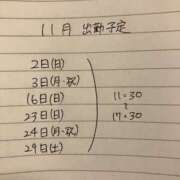 11月 出勤予定
2日(日)
3日(月・祝)
16日(日)
23日(日)
24日(月・祝)
29日(土)
11:30
~
17:30